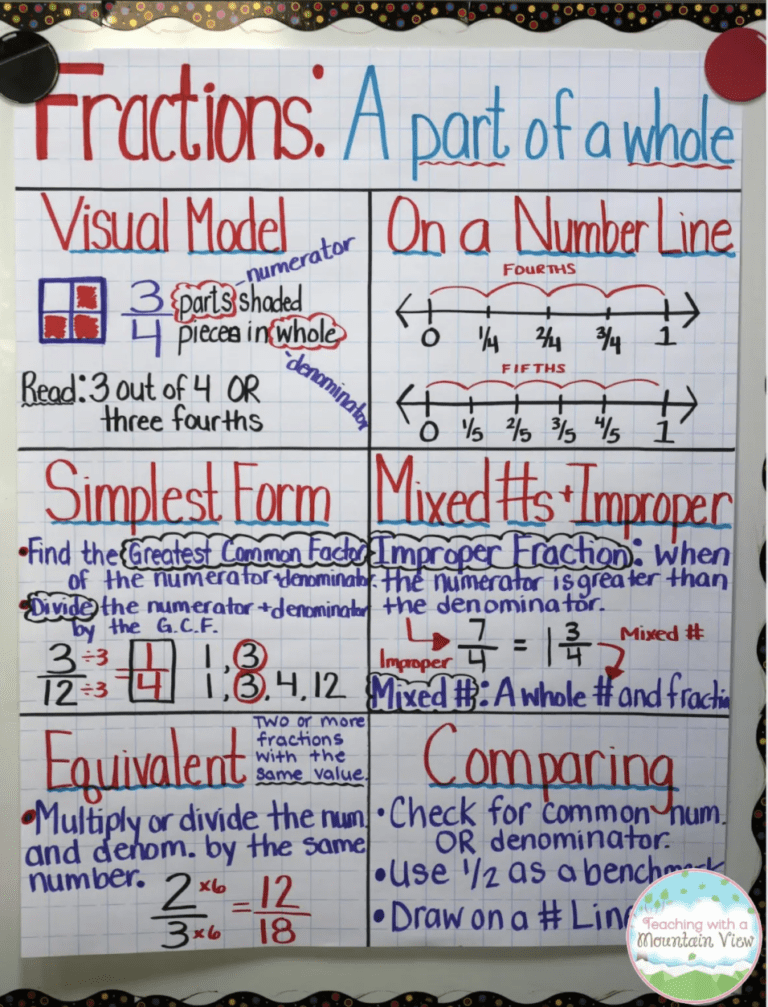 Fractions: A part of a whole
Visual Model
3
4
parts shaded
pieces in whole
numerator
denominator
Read: 3 out of 4 OR
three fourths
On a Number Line
FOURTHS
0 1/4 2/4 3/4 1
FIFTHS
0 1/5 2/5 3/5 4/5 1
Simplest Form
•Find the Greatest Common Factor
of the numerator+denominator.
•Divide the numerator+denominator
by the G.C.F.
3 ÷3 = 1
12 ÷3 4
1, 3
1, 3, 4, 12
Mixed #s + Improper
Improper Fraction: when
the numerator is greater than
the denominator.
Improper 7/4 = 1 3/4 Mixed #
Mixed #: A whole # and
Equivalent
Two or more
fractions
with the
same value.
•Multiply or divide the num.
and denom. by the same
number.
2 ×6 = 12
3 ×6 18
Comparing
•Check for common num.
OR denominator.
•Use 1/2 as a benchmark
•Draw on a # Line
Teaching with a
Mountain View